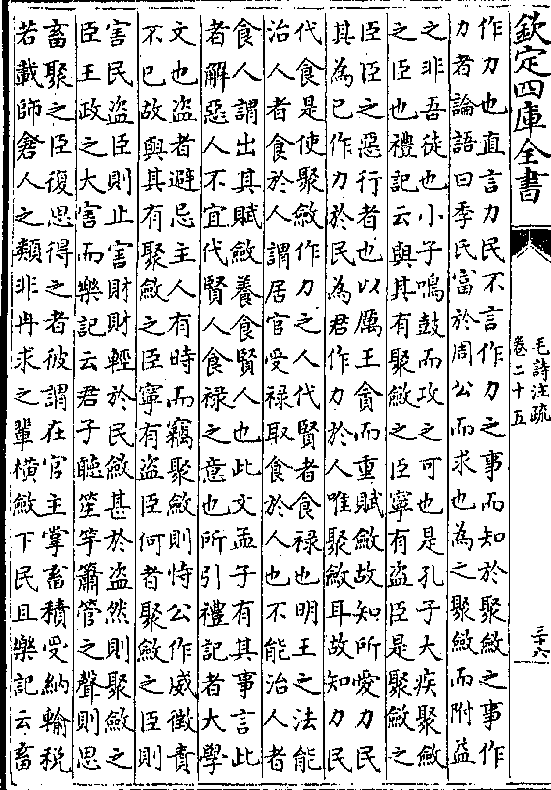 欽定四庫全書
毛詩注疏
卷二十五
三十六
作力也直言力民不言作力之事而知於聚斂之事作
力者論語曰季氏富於周公而求也為之聚斂而附益
之非吾徒也小子鳴鼓而攻之可也是孔子大疾聚斂
之臣也禮記云與其有聚斂之臣寧有盜臣是聚斂之
臣臣之惡行者也以厲王貪而重賦斂故知所愛力民
其為已作力於民為君作力於人唯聚斂耳故知力民
代食是使聚斂作力之人代賢者食祿也明王之法能
治人者食於人謂居官受祿取食於人也不能治人者
食人謂出其賦斂養食賢人也此文孟子有其事言此
者解惡人不宜代賢人食祿之意也所引禮記者大學
文也盜者避忌主人有時而竊聚斂則恃公作威徵責
不已故與其有聚斂之臣寧有盜臣何者聚斂之臣則
害民盜臣則止害財財輕於民斂甚於盜然則聚斂之
臣王政之大害而樂記云君子聽笙竽簫管之聲則思
畜聚之臣復思得之者彼謂在官主掌畜積受納輸稅
若載師倉人之類非冉求之輩橫斂下民且樂記云畜